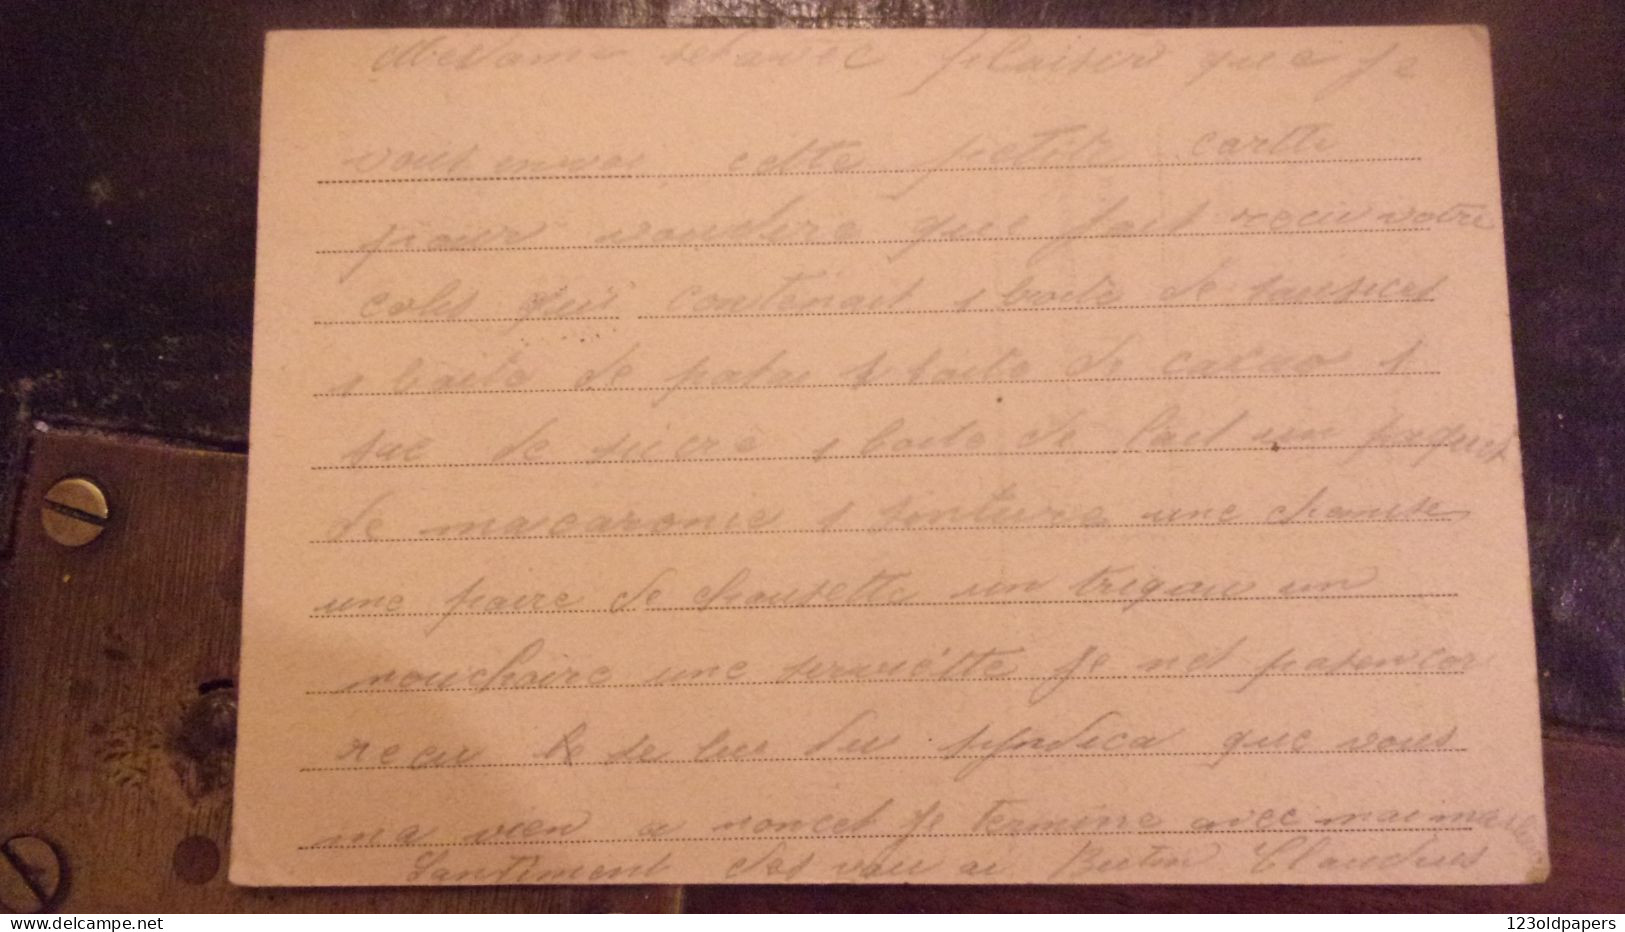 Medame set avec plaiser que je
vous envoi cette petite carte
pour voudire que jait recu votre
colis qui contenait 1 boite de sausices
1 boite de patai 1 boite de cacao 1
sue de sucre 1 boite de lait un paquet
de macaronie 1 sinture une chemise
une paire de chausette un trigau un
mouchoire une serviette je net pas encor
recu le se lue du syndica que vous
ma vien a noncet je termine avec mai maileur
Santiment des vou ai Butin Claudius
123oldpapers